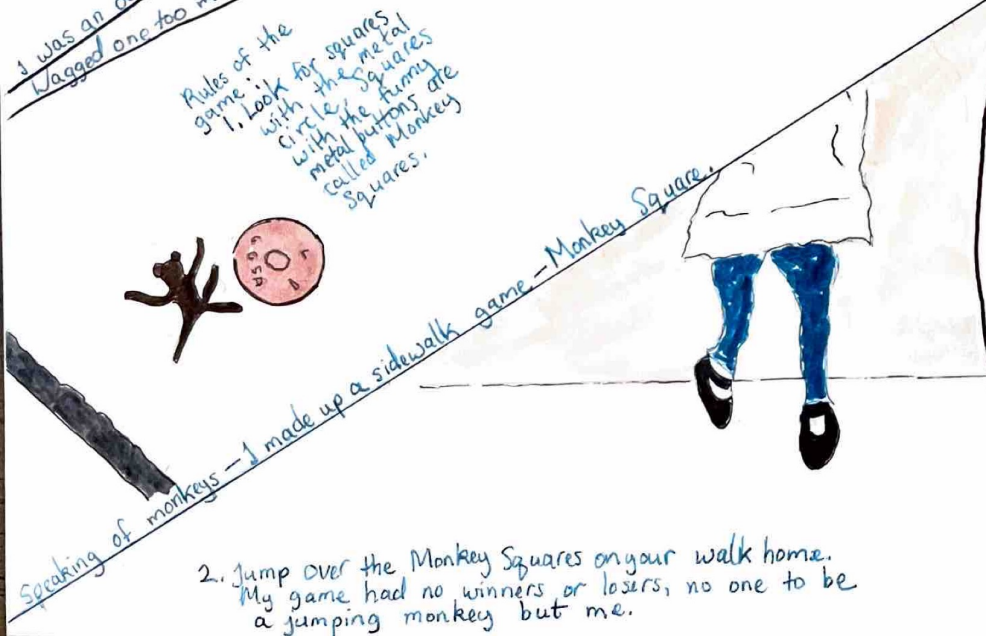 I was an
Wagged one too
Rules of the
game:
1. Look for squares
with the metal
circle. Squares
with the funny
metal buttons are
called Monkey
Squares.
Speaking of monkeys – I made up a sidewalk game. – Monkey Square.
2. Jump over the Monkey Squares on your walk home.
My game had no winners or losers, no one to be
a jumping monkey but me.